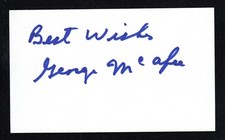 Best Wishes
George McAfee